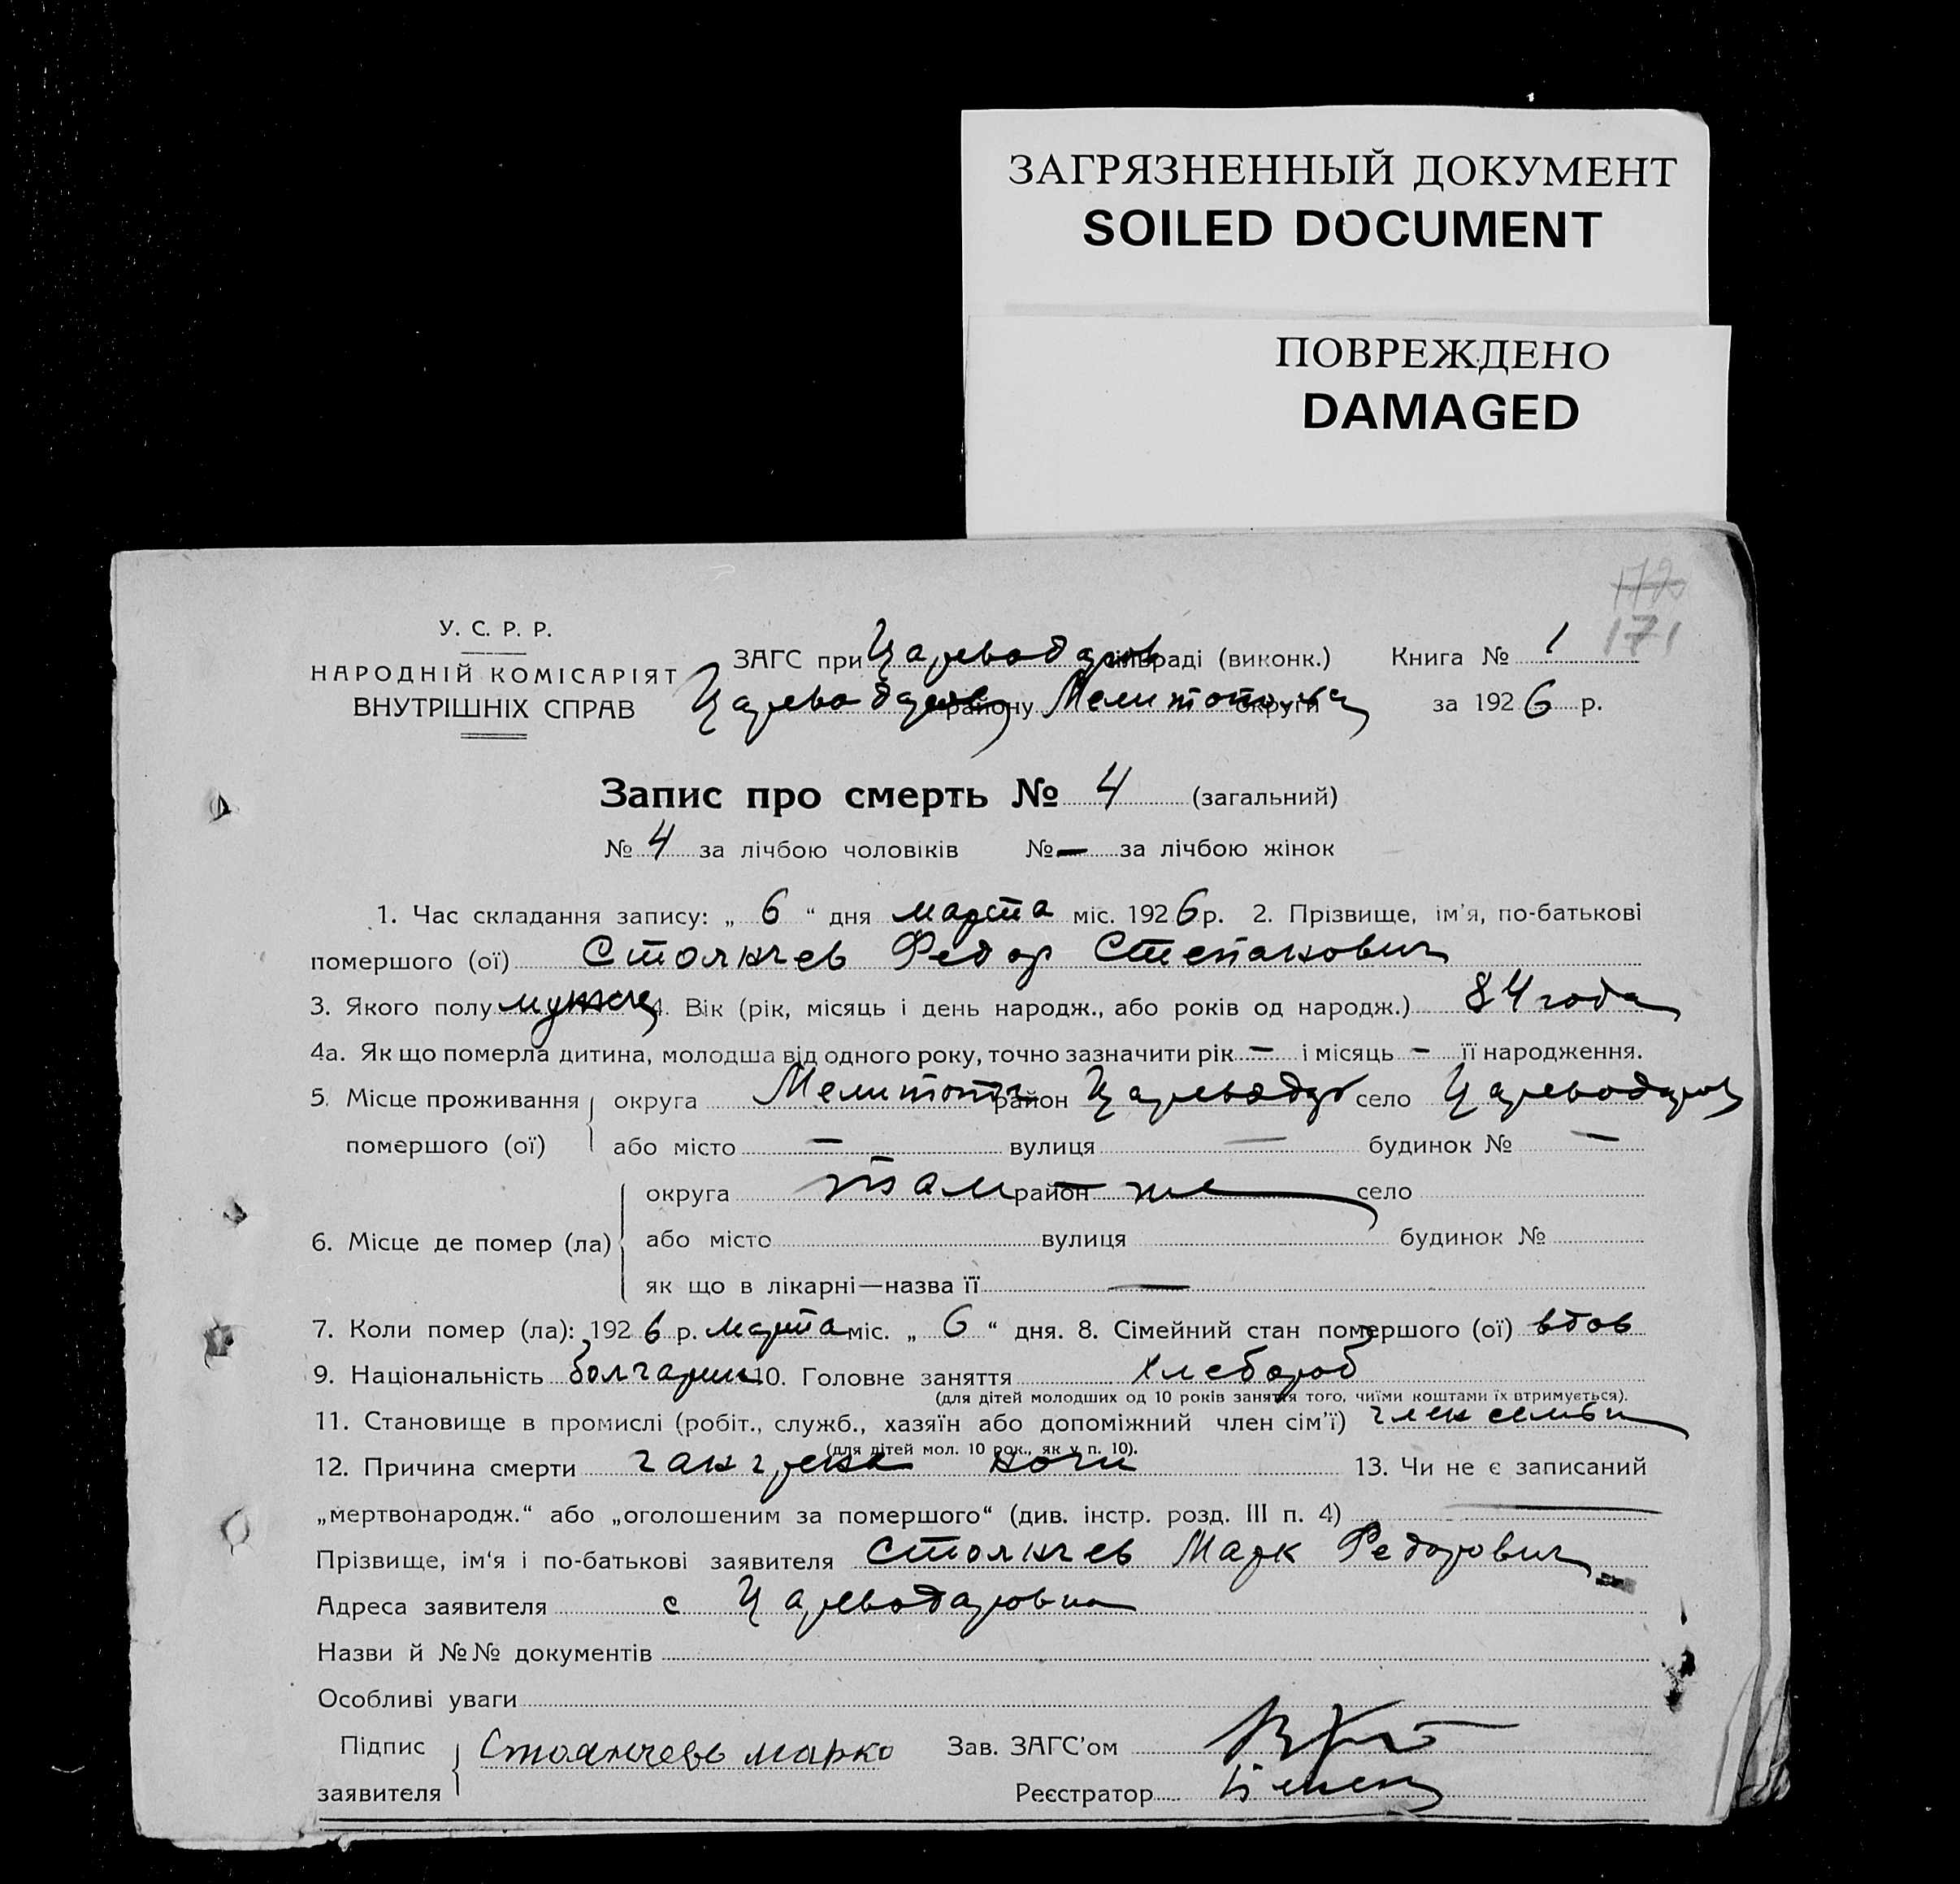 ЗАГРЯЗНЕННЫЙ ДОКУМЕНТ
SOILED DOCUMENT
ПОВРЕЖДЕНО
DAMAGED
172
171
У. С. Р. Р.
НАРОДНІЙ КОМІСАРІЯТ
ВНУТРІШНІХ СПРАВ
ЗАГС при Цареводаров сільраді (виконк.) Книга № 1
Цареводаров району Мелитопольск округи за 1926 р.
Запис про смерть № 4 (загальний)
№ 4 за лічбою чоловіків № — за лічбою жінок
1. Час складання запису: „ 6 “ дня марта міс. 1926 р. 2. Прізвище, ім'я, по-батькові
помершого (ої) Стоянчев Федор Степанович
3. Якого полу мужск 4. Вік (рік, місяць і день народж., або років од народж.) 84 года
4а. Як що померла дитина, молодша від одного року, точно зазначити рік — і місяць — її народження.
5. Місце проживання округа Мелитоп район Царевода село Цареводаров
помершого (ої) або місто — вулиця — будинок № —
округа там район же село
6. Місце де помер (ла) або місто вулиця будинок №
як що в лікарні—назва її —
7. Коли помер (ла): 1926 р. марта міс. „ 6 “ дня. 8. Сімейний стан помершого (ої) вдов
9. Національність болгарин 10. Головне заняття хлебороб
(для дітей молодших од 10 років заняття того, чиїми коштами їх втримується).
11. Становище в промислі (робіт., служб., хазяїн або допоміжний член сім'ї) член семьи
(для дітей мол. 10 рок., як у п. 10).
12. Причина смерти гангрена ноги 13. Чи не є записаний
„мертвонародж.“ або „оголошеним за помершого“ (див. інстр. розд. III п. 4) —
Прізвище, ім‘я і по-батькові заявителя Стоянчев Марк Федорович
Адреса заявителя с Цареводаровка
Назви й №№ документів
Особливі уваги
Підпис Стоянчевь марко Зав. ЗАГС'ом
заявителя Реєстратор